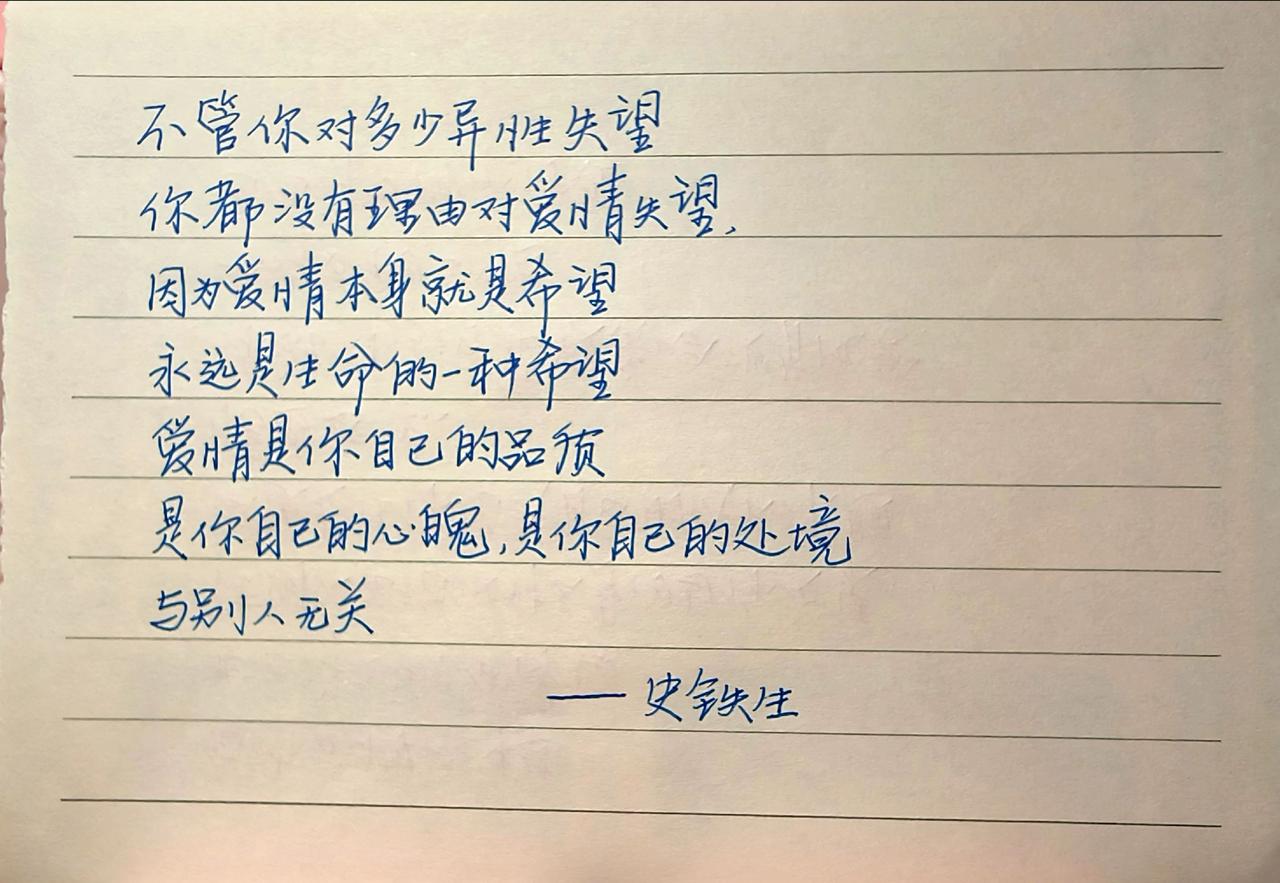 不管你对多少异性失望
你都没有理由对爱情失望,
因为爱情本身就是希望
永远是生命的一种希望
爱情是你自己的品质
是你自己的心魄,是你自己的处境
与别人无关
—— 史铁生